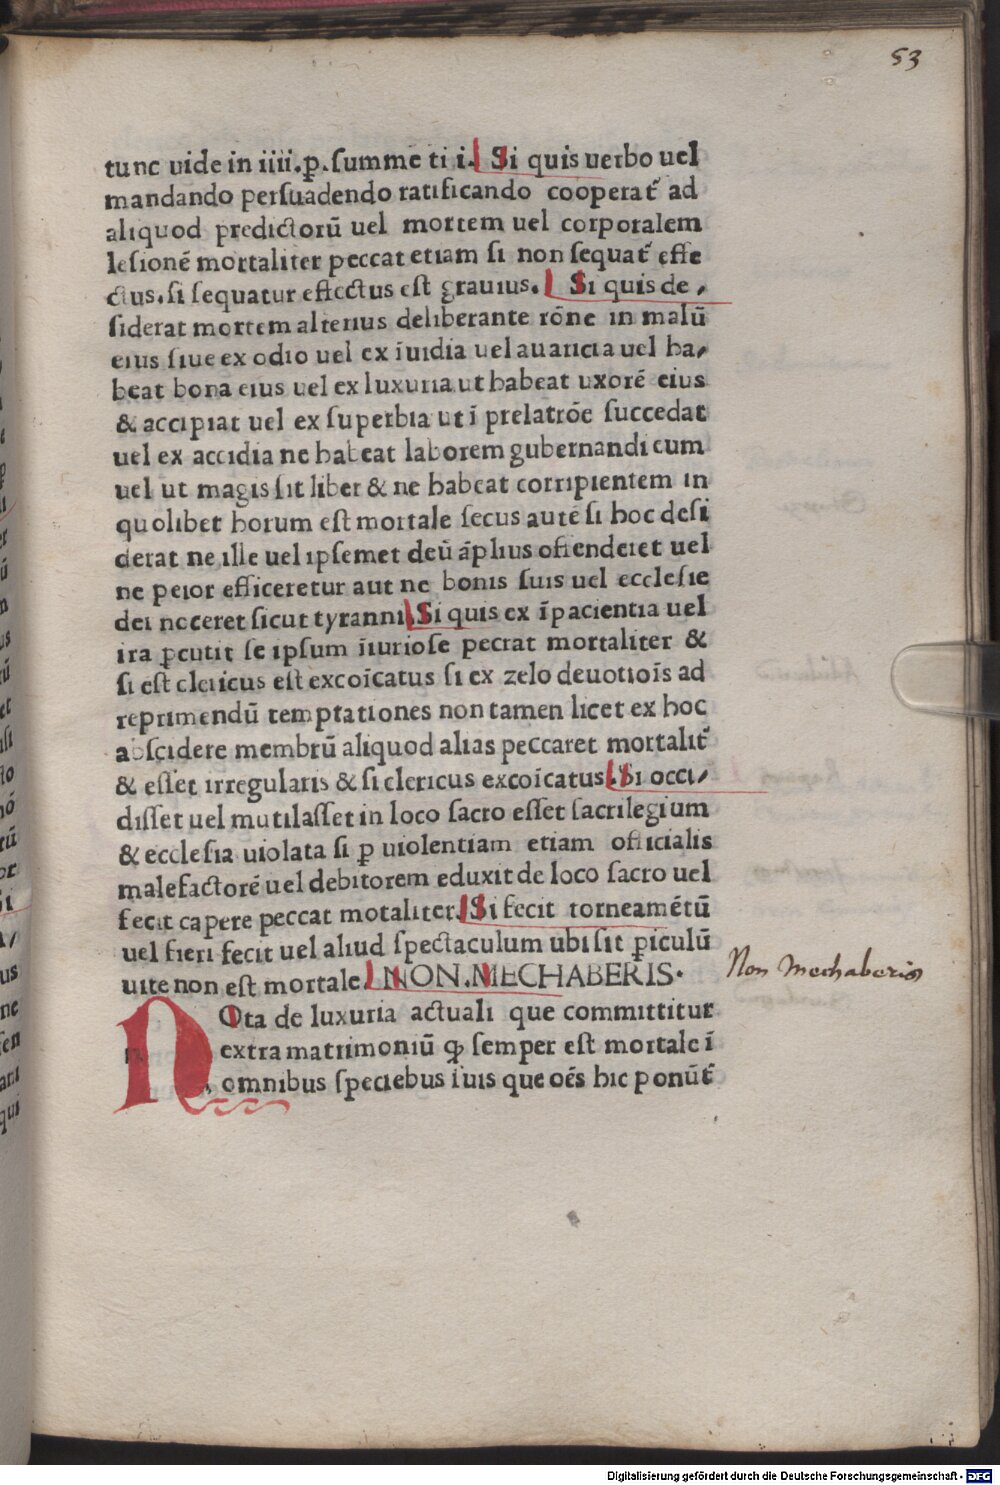 53
tunc uide in iiii.ꝑ.summe ti i. Si quis uerbo uel
mandando persuadendo ratificando cooperat᷑ ad
aliquod predictorū uel mortem uel corporalem
lesionē mortaliter peccat etiam si non sequat᷑ effe
ctus.si sequatur effectus est grauius. Si quis de⸗
siderat mortem alterius deliberante rōne in malū
eius siue ex odio uel ex īuidia uel auaricia uel ha⸗
beat bona eius uel ex luxuria ut habeat uxorē eius
& accipiat uel ex superbia ut ī prelatrōe succedat
uel ex accidia ne habeat laborem gubernandi cum
uel ut magis sit liber & ne habeat corripientem in
quolibet horum est mortale secus autē si hoc desi
derat ne ille uel ipsemet deū āplius offenderet uel
ne peior efficeretur aut ne bonis suis uel ecclesie
dei noceret sicut tyranni. Si quis ex īpacientia uel
ira ꝑcutit se ipsum īiuriose pecrat mortaliter &
si est clericus est excoīcatus si ex zelo deuotiōis ad
reprimendū temptationes non tamen licet ex hoc
abscidere membrū aliquod alias peccaret mortalit᷑
& esset irregularis & si clericus excoīcatus. Si occi⸗
disset uel mutilasset in loco sacro esset sacrilegium
& ecclesia uiolata si ꝑ uiolentiam etiam officialis
malefactorē uel debitorem eduxit de loco sacro uel
fecit capere peccat motaliter. Si fecit torneamētū
uel fieri fecit uel aliud spectaculum ubi sit ꝑiculū
uite non est mortale. NON.MECHABERIS.
Non Mechaberis
NOta de luxuria actuali que committitur
extra matrimoniū ꝙ semper est mortale ī
omnibus speciebus suis que oēs hic ponūt᷑
Digitalisierung gefördert durch die Deutsche Forschungsgemeinschaft - DFG